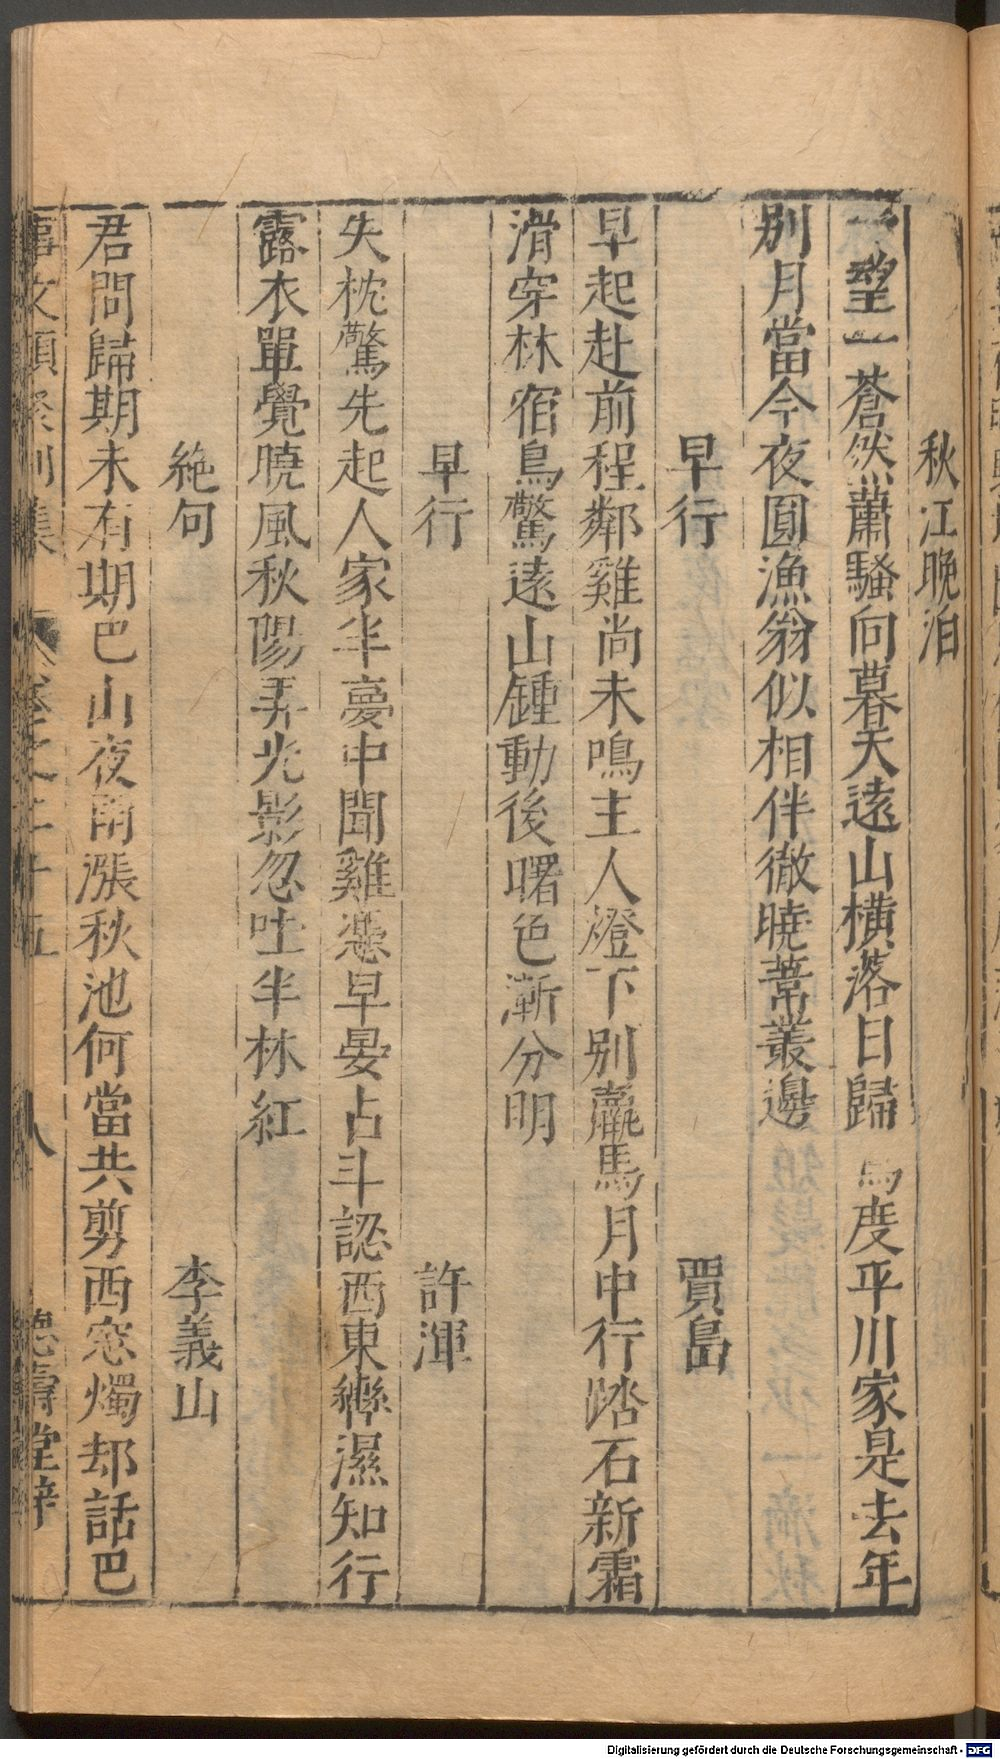 秋江晚泊
一望一蒼然蕭騷向暮天遠山橫落日歸鳥度平川家是去年
別月當今夜圓漁翁似相伴徹曉葦叢邊
早行 賈島
早起赴前程鄰雞尚未鳴主人燈下別羸馬月中行踏石新霜
滑穿林宿鳥驚遠山鍾動後曙色漸分明
早行 許渾
失枕驚先起人家半夢中聞雞憑早晏占斗認西東轡濕知行
露衣單覺曉風秋陽弄光影忽吐半林紅
絶句 李義山
君問歸期未有期巴山夜雨漲秋池何當共剪西窓燭却話巴
事文類聚別集 卷之二十五 八 德壽堂梓
Digitalisierung gefördert durch die Deutsche Forschungsgemeinschaft - DFG